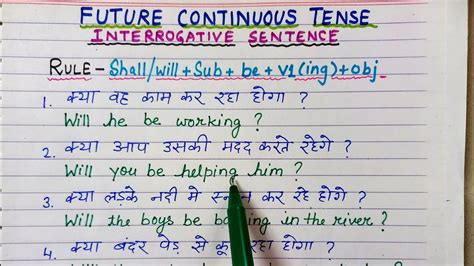 FUTURE CONTINUOUS TENSE
INTERROGATIVE SENTENCE
RULE - Shall/will + Sub + be + V1(ing) + obj
1. क्या वह काम कर रहा होगा ?
Will he be working ?
2. क्या आप उसकी मदद करते रहेगे ?
Will you be helping him ?
3. क्या लड़के नदी मे कर रहे होगे ?
Will the boys be in the river ?
4. क्या बंदर पेड़ से रहा होगा ?